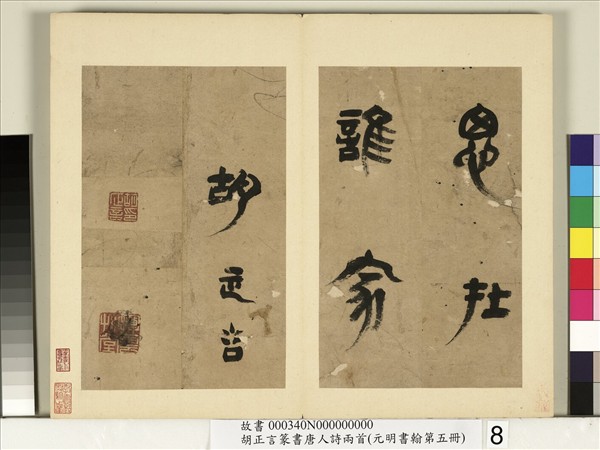 思在
誰家
胡正言
故書 000340N000000000
胡正言篆書唐人詩兩首(元明書翰第五冊)
8